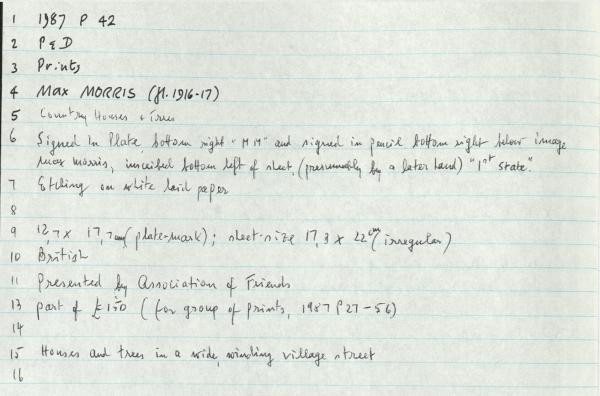 1 1987 P 42
2 P&D
3 Prints
4 Max MORRIS (fl. 1916-17)
5 Country Houses & trees
6 Signed In Plate, bottom right "MM" and signed in pencil bottom right below image
Max Morris, inscribed bottom left of sheet, (presumably by a later hand) "1st state".
7 Etching on white laid paper
8
9 12,7 x 17,7 cm (plate-mark); sheet-size 17,3 x 22 cm (irregular)
10 British
11 Presented by Association of Friends
13 part of £150 (for group of prints, 1987 P27-56)
14
15 Houses and trees in a wide, winding village street
16